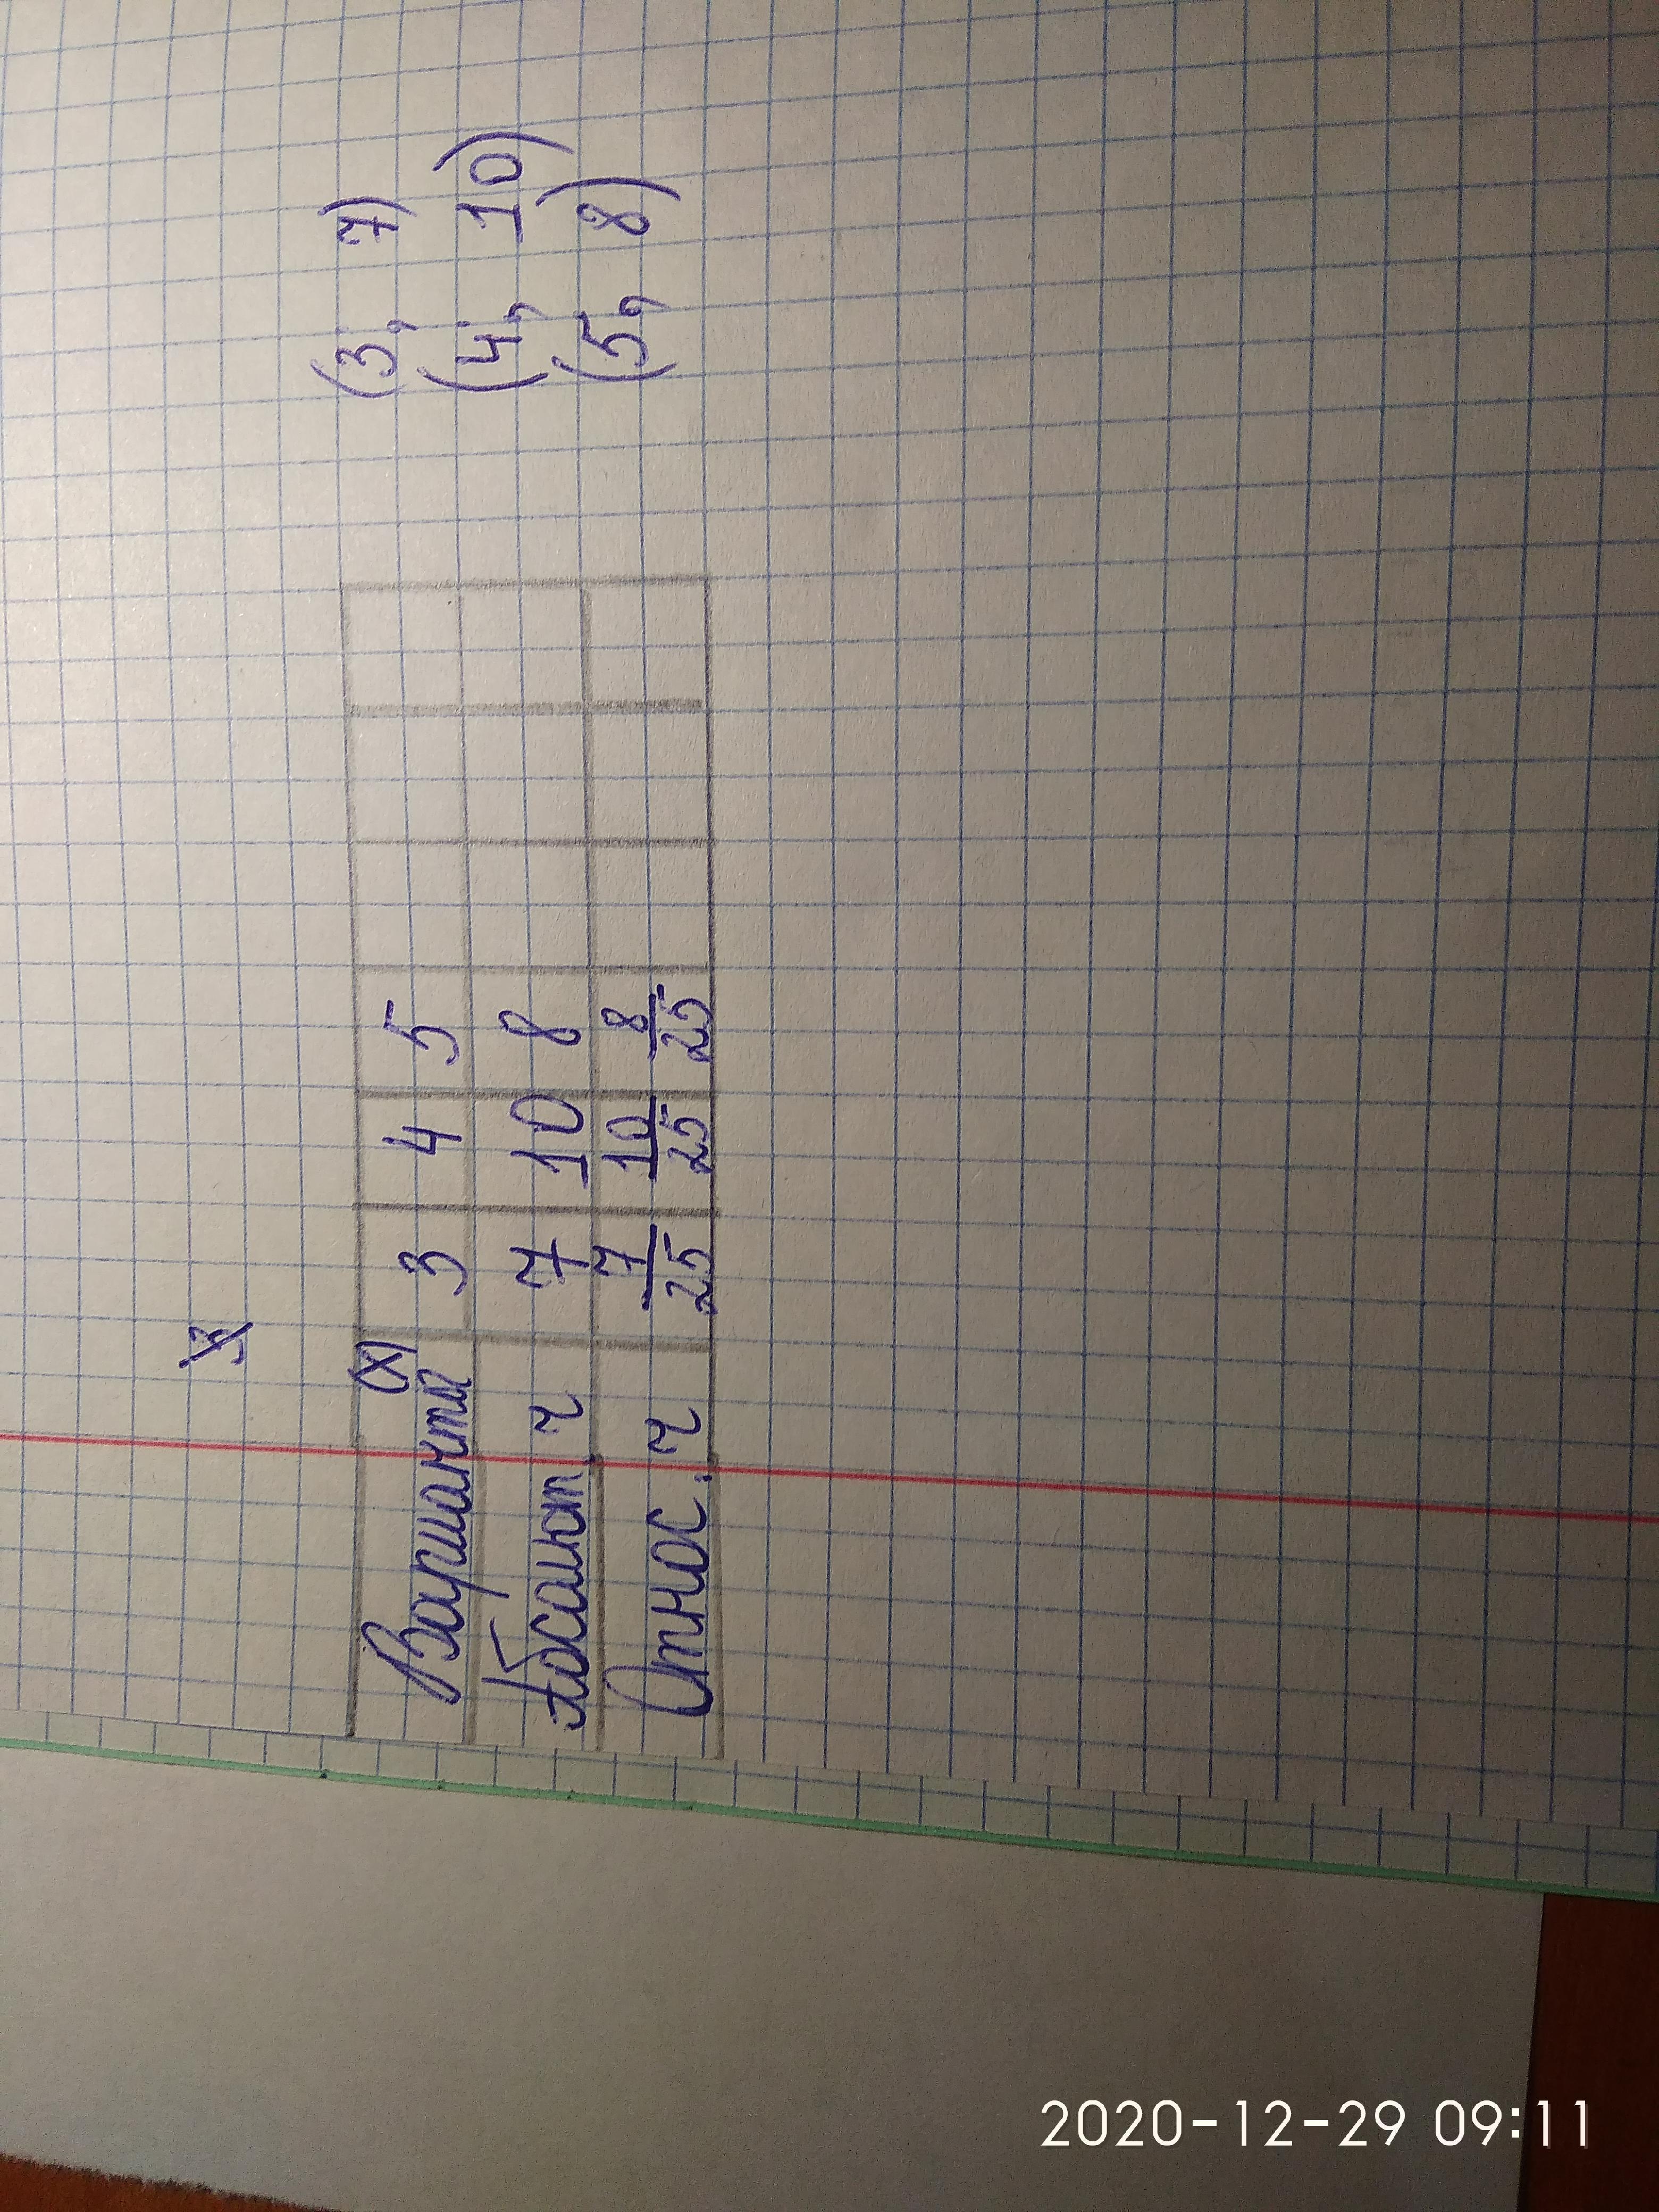 (х)
Варианты 3 4 5
Абсолют. ч 7 10 8
Относ. ч 7/25 10/25 8/25
(3, 7)
(4, 10)
(5, 8)
2020-12-29 09:11